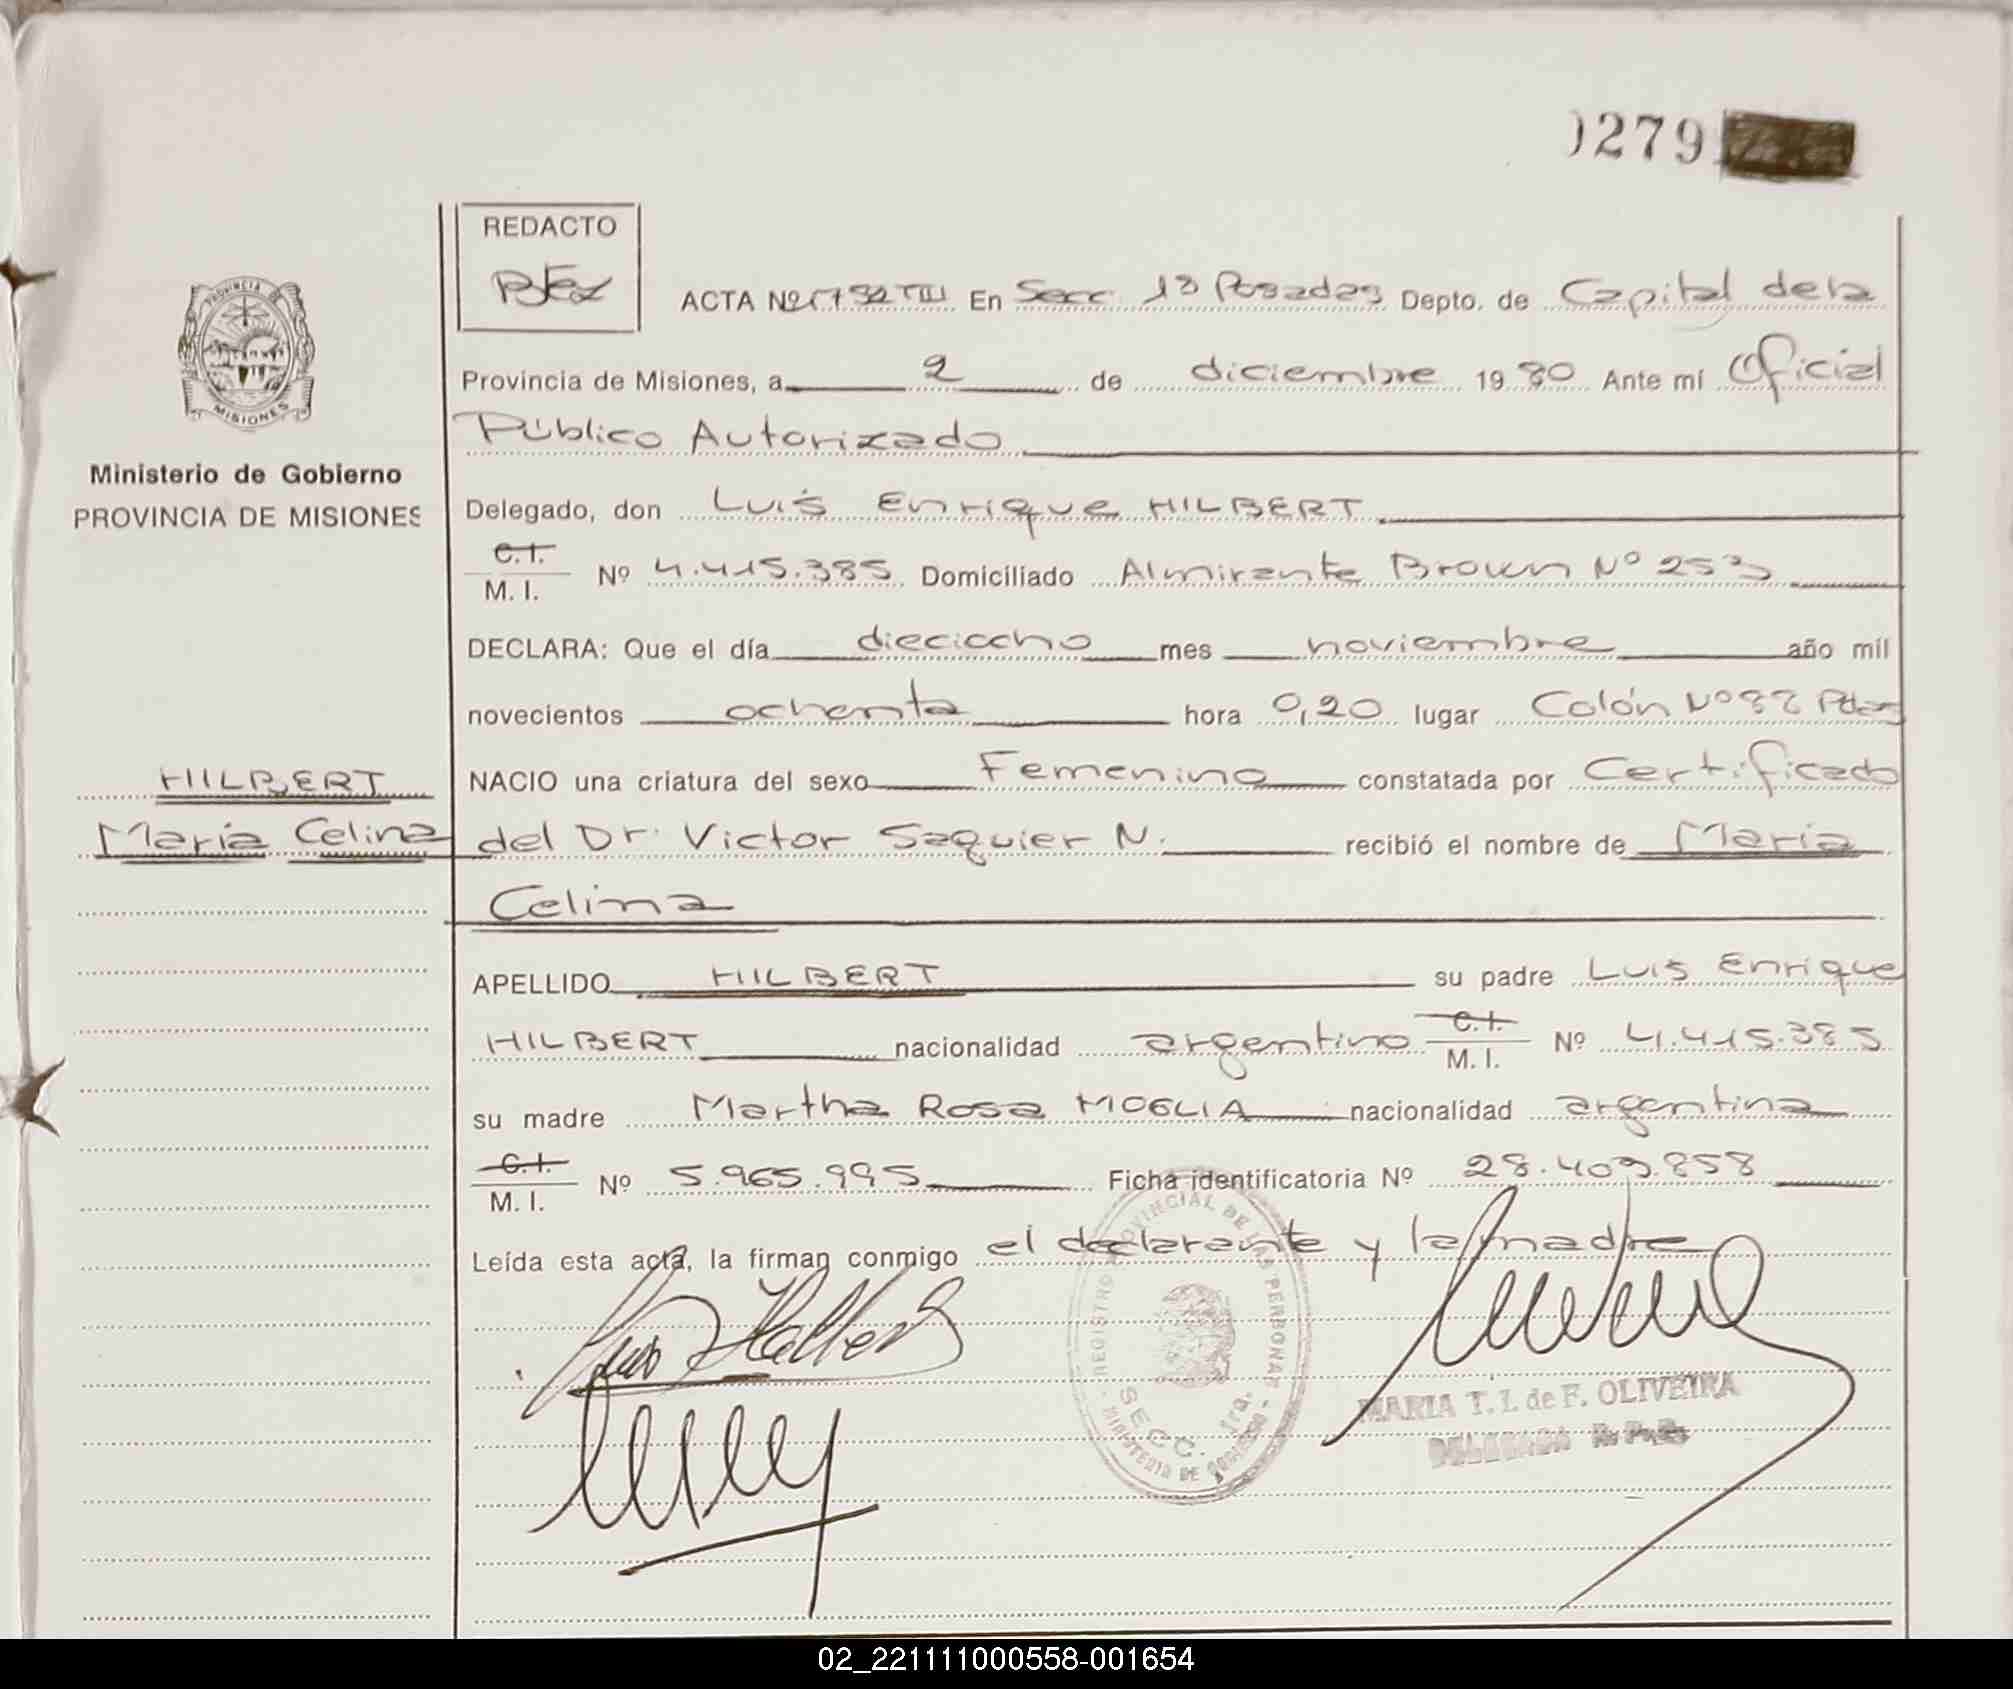 0279
REDACTO
ACTA Nº 1792 TIII En Secc 1ª Posadas Depto. de Capital de la
Provincia de Misiones, a 2 de diciembre 1980 Ante mí Oficial
Público Autorizado
PROVINCIA DE
MISIONES
Ministerio de Gobierno
PROVINCIA DE MISIONES
Delegado, don Luis Enrique HILBERT
C.I.
M. I. Nº 4.415.385 Domiciliado Almirante Brown Nº 253
DECLARA: Que el día dieciocho mes noviembre año mil
novecientos ochenta hora 0,20 lugar Colón Nº 82 Pdas
HILBERT
NACIO una criatura del sexo Femenino constatada por Certificado
María Celina
del Dr. Victor Saguier N. recibió el nombre de María
Celina
APELLIDO HILBERT su padre Luis Enrique
HILBERT nacionalidad argentino C.I. M. I. Nº 4.415.385
su madre Martha Rosa MOGLIA nacionalidad argentina
C.I.
M. I. Nº 5.965.995 Ficha identificatoria Nº 28.409.858
Leída esta acta, la firman conmigo el declarante y la madre
REGISTRO PROVINCIAL DE LAS PERSONAS
SECC. 1ra.
MINISTERIO DE GOBIERNO
MARIA T. I. de F. OLIVEIRA
DELEGADA R. P. P.
02_221111000558-001654